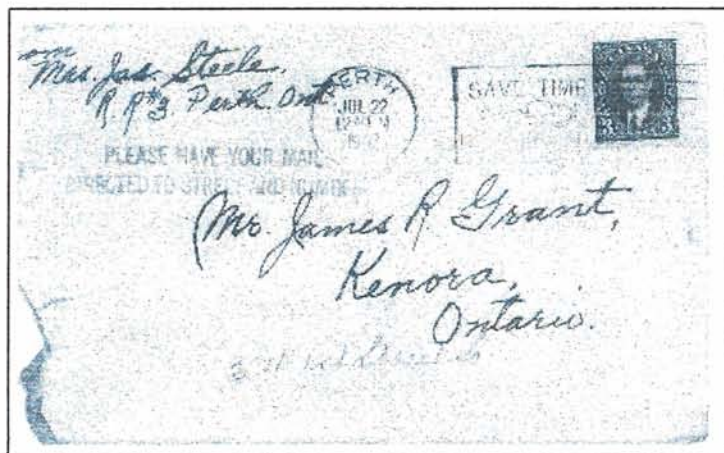 from
Mrs. Jas. Steele.
R. R #3. Perth. Ont.
PERTH
JUL 22
SAVE TIME
3 3
PLEASE HAVE YOUR MAIL
DIRECTED TO STREET AND NUMBER
Mr. James R Grant,
Kenora,
Ontario.